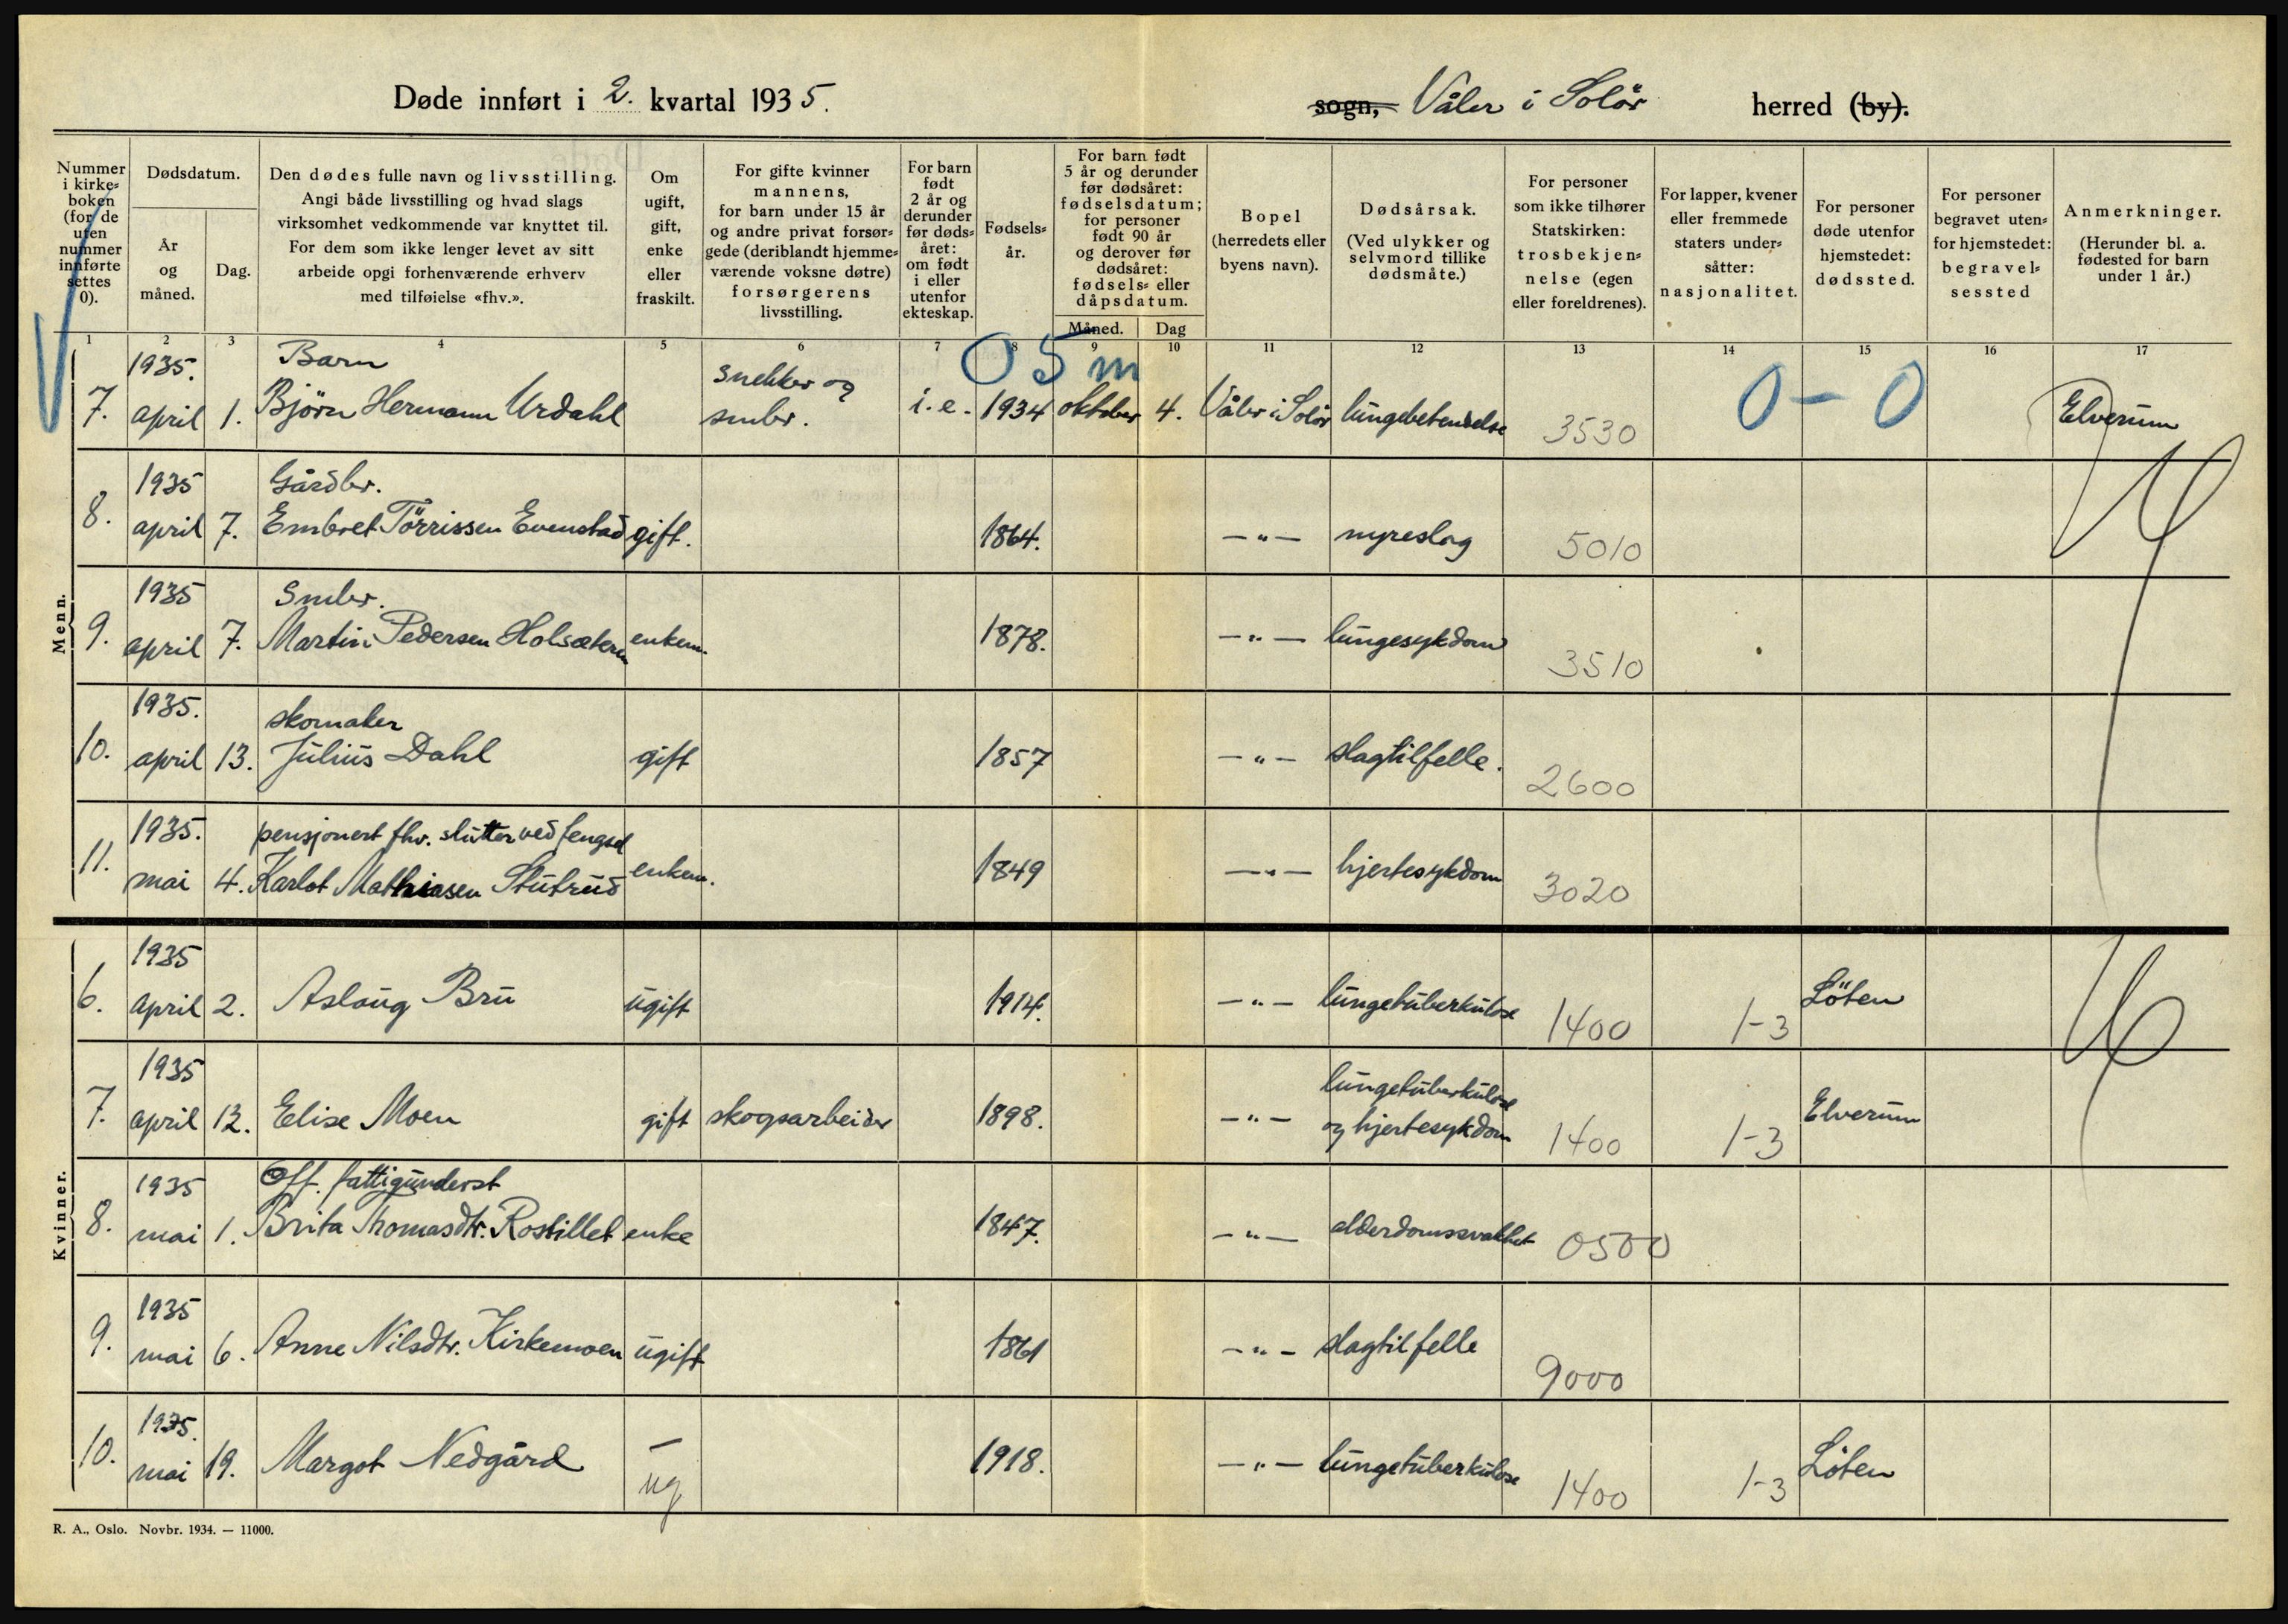 Døde innført i 2. kvartal 1935. sogn, Våler i Solør herred (by).
Nummer i kirke= boken (for de uten nummer innførte settes 0).
Dødsdatum.
År og måned.
Dag.
Den dødes fulle navn og livsstilling.
Angi både livsstilling og hvad slags
virksomhet vedkommende var knyttet til.
For dem som ikke lenger levet av sitt
arbeide opgi forhenværende erhverv
med tilføielse «fhv.».
Om ugift, gift, enke eller fraskilt.
For gifte kvinner mannens, for barn under 15 år og andre privat forsør= gede (deriblandt hjemme= værende voksne døtre) forsørgerens livsstilling.
For barn født 2 år og derunder før døds= året: om født i eller utenfor ekteskap.
Fødsels= år.
For barn født 5 år og derunder før dødsåret: fødselsdatum; for personer født 90 år og derover før dødsåret: fødsels= eller dåpsdatum.
Måned. Dag
Bopel (herredets eller byens navn).
Dødsårsak. (Ved ulykker og selvmord tillike dødsmåte.)
For personer som ikke tilhører Statskirken: trosbekjen= nelse (egen eller foreldrenes).
For lapper, kvener eller fremmede staters under= såtter: nasjonalitet.
For personer døde utenfor hjemstedet: dødssted.
For personer begravet uten= for hjemstedet: begravel= sessted
Anmerkninger. (Herunder bl. a. fødested for barn under 1 år.)
1 2 3 4 5 6 7 8 9 10 11 12 13 14 15 16 17
Menn.
1935. Barn snekker og 05 m
7. april 1. Bjørn Hermann Urdahl smbr. i. e. 1934 oktober 4. Våler i Solør lungebetendelse 3530 0 - 0 Elverum
1935 Gårdbr.
8. april 7. Embret Törrissen Evenstad gift. 1864. —"— nyreslag 5010
1935 Smbr.
9. april 7. Martin Pedersen Holsæteren enkem. 1878. —"— lungesykdom 3510
1935. skomaker
10. april 13. Julius Dahl gift 1857 —"— slagtilfelle. 2600
1935. pensjonert fhv. slutter ved fengsel
11. mai 4. Karlot Mathiasen Stutrud enkem. 1849 —"— hjertesykdom 3020
Kvinner.
1935
6. april 2. Aslaug Bru ugift 1914. —"— lungetuberkulose 1400 1-3 Löten
1935 lungetuberkulose
7. april 12. Elise Moen gift skogsarbeider 1898. —"— og hjertesykdom 1400 1-3 Elverum
1935 Off. fattigunderst
8. mai 1. Brita Thomasdtr. Rostillet enke 1847. —"— alderdomssvakhet 0500
1935
9. mai 6. Anne Nilsdtr. Kirkemoen ugift 1861 —"— slagtilfelle 9000
1935.
10. mai 19. Margot Nedgård — ug 1918. —"— lungetuberkulose 1400 1-3 Löten
R. A., Oslo. Novbr. 1934. — 11000.